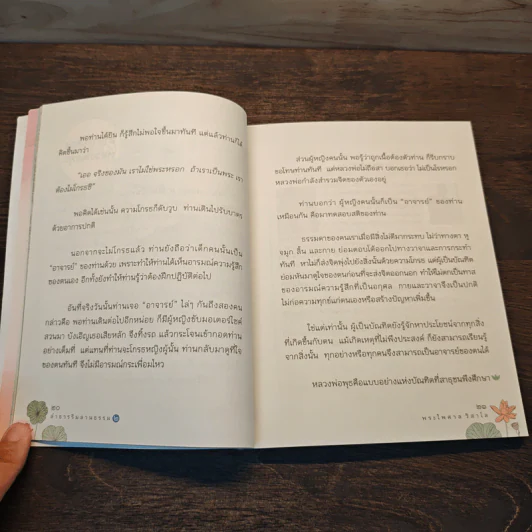 พอท่านได้ยิน ก็รู้สึกไม่พอใจขึ้นมาทันที แต่แล้วท่านก็ได้
คิดขึ้นมาว่า
"เออ จริงของมัน เราไม่ใช่พระหรอก ถ้าเราเป็นพระ เรา
ต้องไม่โกรธซิ"
พอคิดได้เช่นนั้น ความโกรธก็ดับวูบ ท่านเดินไปรับบาตร
ด้วยอาการปกติ
นอกจากจะไม่โกรธแล้ว ท่านยังถือว่าเด็กคนนั้นเป็น
"อาจารย์" ของท่านด้วย เพราะทำให้ท่านได้เห็นอารมณ์ความรู้สึก
ของตนเอง อีกทั้งยังทำให้ท่านรู้ว่าต้องฝึกปฏิบัติต่อไป
อันที่จริงวันนั้นท่านเจอ "อาจารย์" ไล่ๆ กันถึงสองคน
กล่าวคือ พอท่านเดินต่อไปอีกหน่อย ก็มีผู้หญิงขับมอเตอร์ไซค์
สวนมา บังเอิญเธอเสียหลัก จึงทิ้งรถ แล้วกระโจนเข้ากอดท่าน
อย่างเต็มที่ แต่แทนที่ท่านจะโกรธหญิงผู้นั้น ท่านกลับมาดูที่ใจ
ของตนทันที จึงไม่มีอารมณ์กระเพื่อมไหว
๒๐
ลำธารริมลานธรรม ๒
ส่วนผู้หญิงคนนั้น พอรู้ว่าถูกเนื้อต้องตัวท่าน ก็รีบกราบ
ขอโทษท่านทันที แต่หลวงพ่อไม่ถือสา บอกเธอว่า ไม่เป็นไรหรอก
หลวงพ่อกำลังสำรวจจิตของตัวเองอยู่
ท่านบอกว่า ผู้หญิงคนนั้นก็เป็น "อาจารย์" ของท่าน
เหมือนกัน คือมาทดสอบสติของท่าน
ธรรมดาของคนเราเมื่อมีสิ่งไม่ดีมากระทบ ไม่ว่าทางตา หู
จมูก ลิ้น และกาย ย่อมตอบโต้ออกไปทางวาจาและการกระทำ
ทันที หาไม่ก็ส่งจิตพุ่งไปยังสิ่งนั้นด้วยความโกรธ แต่ผู้เป็นบัณฑิต
ย่อมหันมาดูใจของตนก่อนที่จะส่งจิตออกนอก ทำให้ไม่ตกเป็นทาส
ของอารมณ์ความรู้สึกที่เป็นอกุศล กายและวาจาจึงเป็นปกติ
ไม่ก่อความทุกข์แก่ตนเองหรือสร้างปัญหาเพิ่มขึ้น
ใช่แต่เท่านั้น ผู้เป็นบัณฑิตยังรู้จักหาประโยชน์จากทุกสิ่ง
ที่เกิดขึ้นกับตน แม้เกิดเหตุที่ไม่พึงประสงค์ ก็ยังสามารถเรียนรู้
จากสิ่งนั้น ทุกอย่างหรือทุกคนจึงสามารถเป็นอาจารย์ของตนได้
หลวงพ่อพุธคือแบบอย่างแห่งบัณฑิตที่สาธุชนพึงศึกษา
๒๑
พระไพศาล วิสาโล